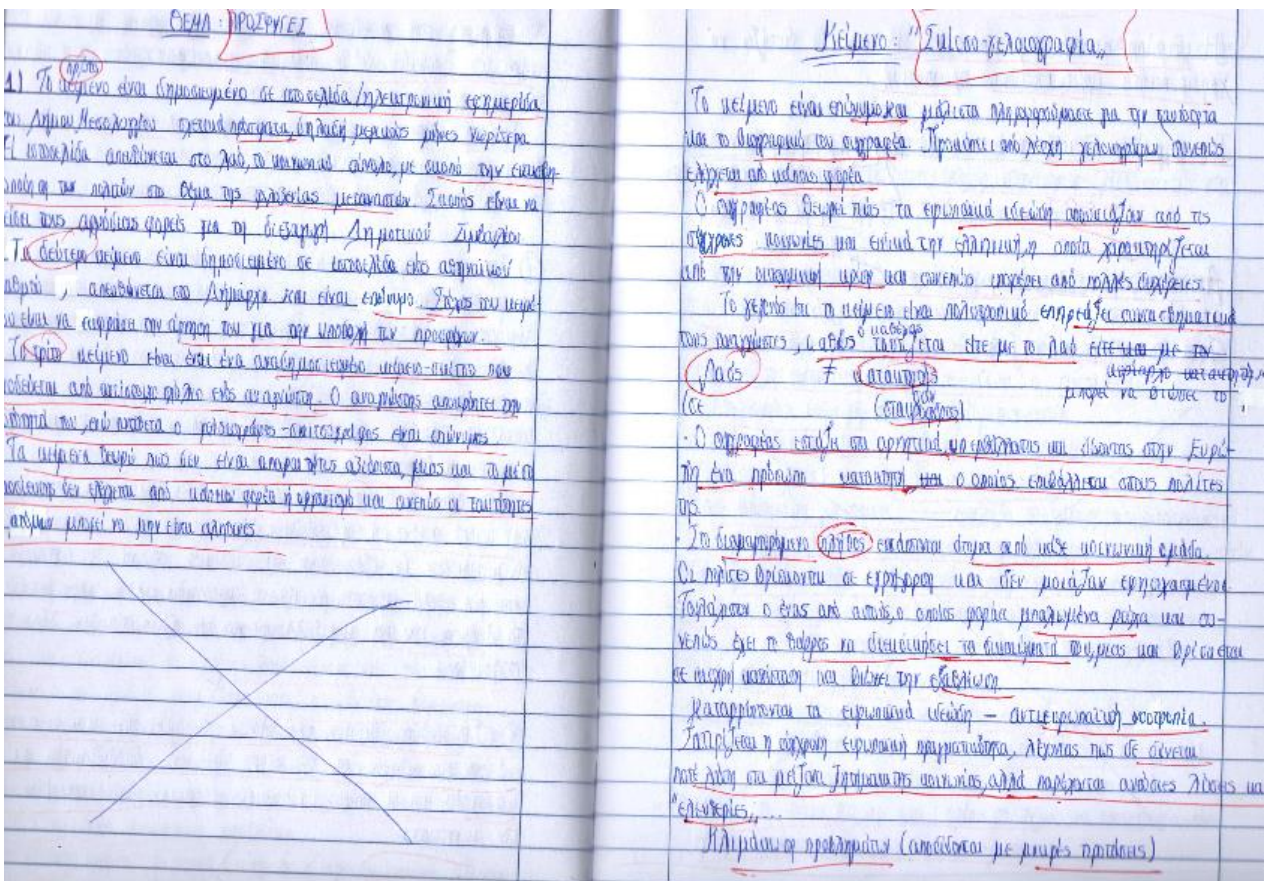 ΘΕΜΑ : ΠΡΟΣΦΥΓΕΣ
πρώτο
1) Το κείμενο είναι δημοσιευμένο σε ιστοσελίδα/ηλεκτρονική εφημερίδα
του Δήμου Μεσολογγίου σχετικά πρόσφατα, δηλαδή μερικούς μήνες νωρίτερα
Η ιστοσελίδα απευθύνεται στο λαό, το κοινωνικό σύνολο, με σκοπό την
των πολιτών στο θέμα της μεταναστών Σκοπός είναι να
τους αρμόδιους φορείς για τη διεξαγωγή Δημοτικού Συμβουλίου
Το δεύτερο κείμενο είναι δημοσιευμένο σε ιστοσελίδα ενός αθηναϊκού
, απευθύνεται στο Δήμαρχο και είναι επώνυμο. Στόχος του
είναι να εκφράσει την άρνηση του για την υποδοχή των προσφύγων.
Το τρίτο κείμενο είναι ένα αναδημοσιευμένο κείμενο που
από ενός αναγνώστη. Ο αναγνώστης αποκρύπτει την
του, ενώ αντίθετα ο είναι επώνυμος
Τα κείμενα θεωρώ πως δεν είναι απαραιτήτως αξιόπιστα, μιας και το μέσο
δεν ελέγχεται από κάποιον φορέα ή οργανισμό και συνεπώς οι ταυτότητες
ατόμων μπορεί να μην είναι αληθινές
Κείμενο : "Σκίτσο-γελοιογραφία"
Το κείμενο είναι επώνυμο και μάλιστα πληροφορούμαστε για την ταυτότητα
και το βιογραφικό του συγγραφέα. Προκύπτει από λέσχη γελοιογράφων, συνεπώς
ελέγχεται από κάποιο φορέα
Ο συγγραφέας θεωρεί πώς τα ευρωπαϊκά ιδεώδη απουσιάζουν από τις
σύγχρονες κοινωνίες και ειδικά την ελληνική, η οποία χαρακτηρίζεται
από την οικονομική κρίση και συνεπώς υποφέρει από πολλές δυσχέρειες.
Το γεγονός ότι το κείμενο είναι πολυτροπικό επηρεάζει συναισθηματικά
τους αναγνώστες, καθώς ο καθένας ταυτίζεται είτε με το λαό είτε με τον
Λαός ≠ κατακτητής
μπορεί να βιώσει το
(σε
Ο συγγραφέας εστιάζει στα αρνητικά, υπερβάλλοντας και δίνοντας στην Ευρώ-
πη ένα πρόσωπο κατακτητή, ο οποίος επιβάλλεται στους πολίτες
της.
- Στο διαμαρτυρόμενο πλήθος εντάσσονται άτομα από κάθε κοινωνική ομάδα.
Οι πολίτες βρίσκονται σε εγρήγορση και δεν μοιάζουν εφησυχασμένοι
Τουλάχιστον ο ένας από αυτούς, ο οποίος φοράει μπαλωμένα ρούχα και συ-
νεπώς έχει το θάρρος να διεκδικήσει τα δικαιώματά του, μιας και βρίσκεται
σε κατάσταση και βιώνει την εξαθλίωση
Καταρρίπτονται τα ευρωπαϊκά ιδεώδη – αντιευρωπαϊκή νοοτροπία.
Σατιρίζεται η σύγχρονη ευρωπαϊκή πραγματικότητα, λέγοντας πως δε δίνεται
ποτέ λύση στα μείζονα ζητήματα της κοινωνίας, αλλά παρέχονται ανώδυνες λύσεις και
"ελευθερίες" ...
Κλιμάκωση προβλημάτων (αποδίδονται με μικρές προτάσεις)